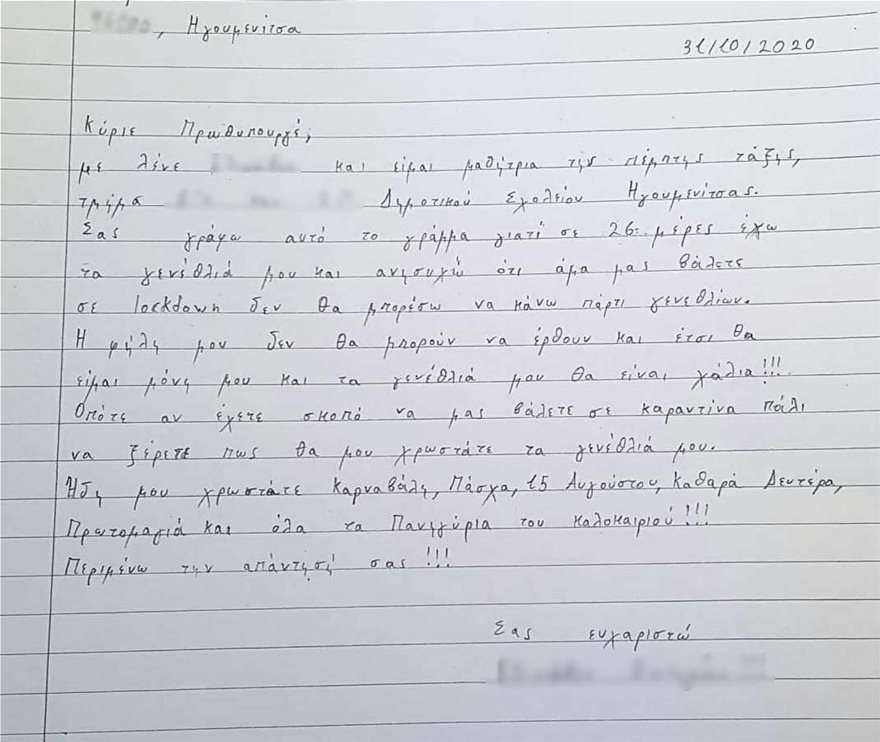 , Ηγουμενίτσα
31/10/2020
Κύριε Πρωθυπουργέ,
με λένε και είμαι μαθήτρια της πέμπτης τάξης,
τμήμα Δημοτικού Σχολείου Ηγουμενίτσας.
Σας γράφω αυτό το γράμμα γιατί σε 26 μέρες έχω
τα γενέθλιά μου και ανησυχώ ότι άμα μας βάλετε
σε lockdown δεν θα μπορέσω να κάνω πάρτι γενεθλίων.
Η φήλη μου δεν θα μπορούν να έρθουν και έτσι θα
είμαι μόνη μου και τα γενέθλιά μου θα είναι χάλια!!!
Οπότε αν έχετε σκοπό να μας βάλετε σε καραντίνα πάλι
να ξέρετε πως θα μου χρωστάτε τα γενέθλιά μου.
Ήδη μου χρωστάτε Καρναβάλη, Πάσχα, 15 Αυγούστου, Καθαρά Δευτέρα,
Πρωτομαγιά και όλα τα Πανηγύρια του καλοκαιριού!!!
Περιμένω την απάντησή σας!!!
Σας ευχαριστώ